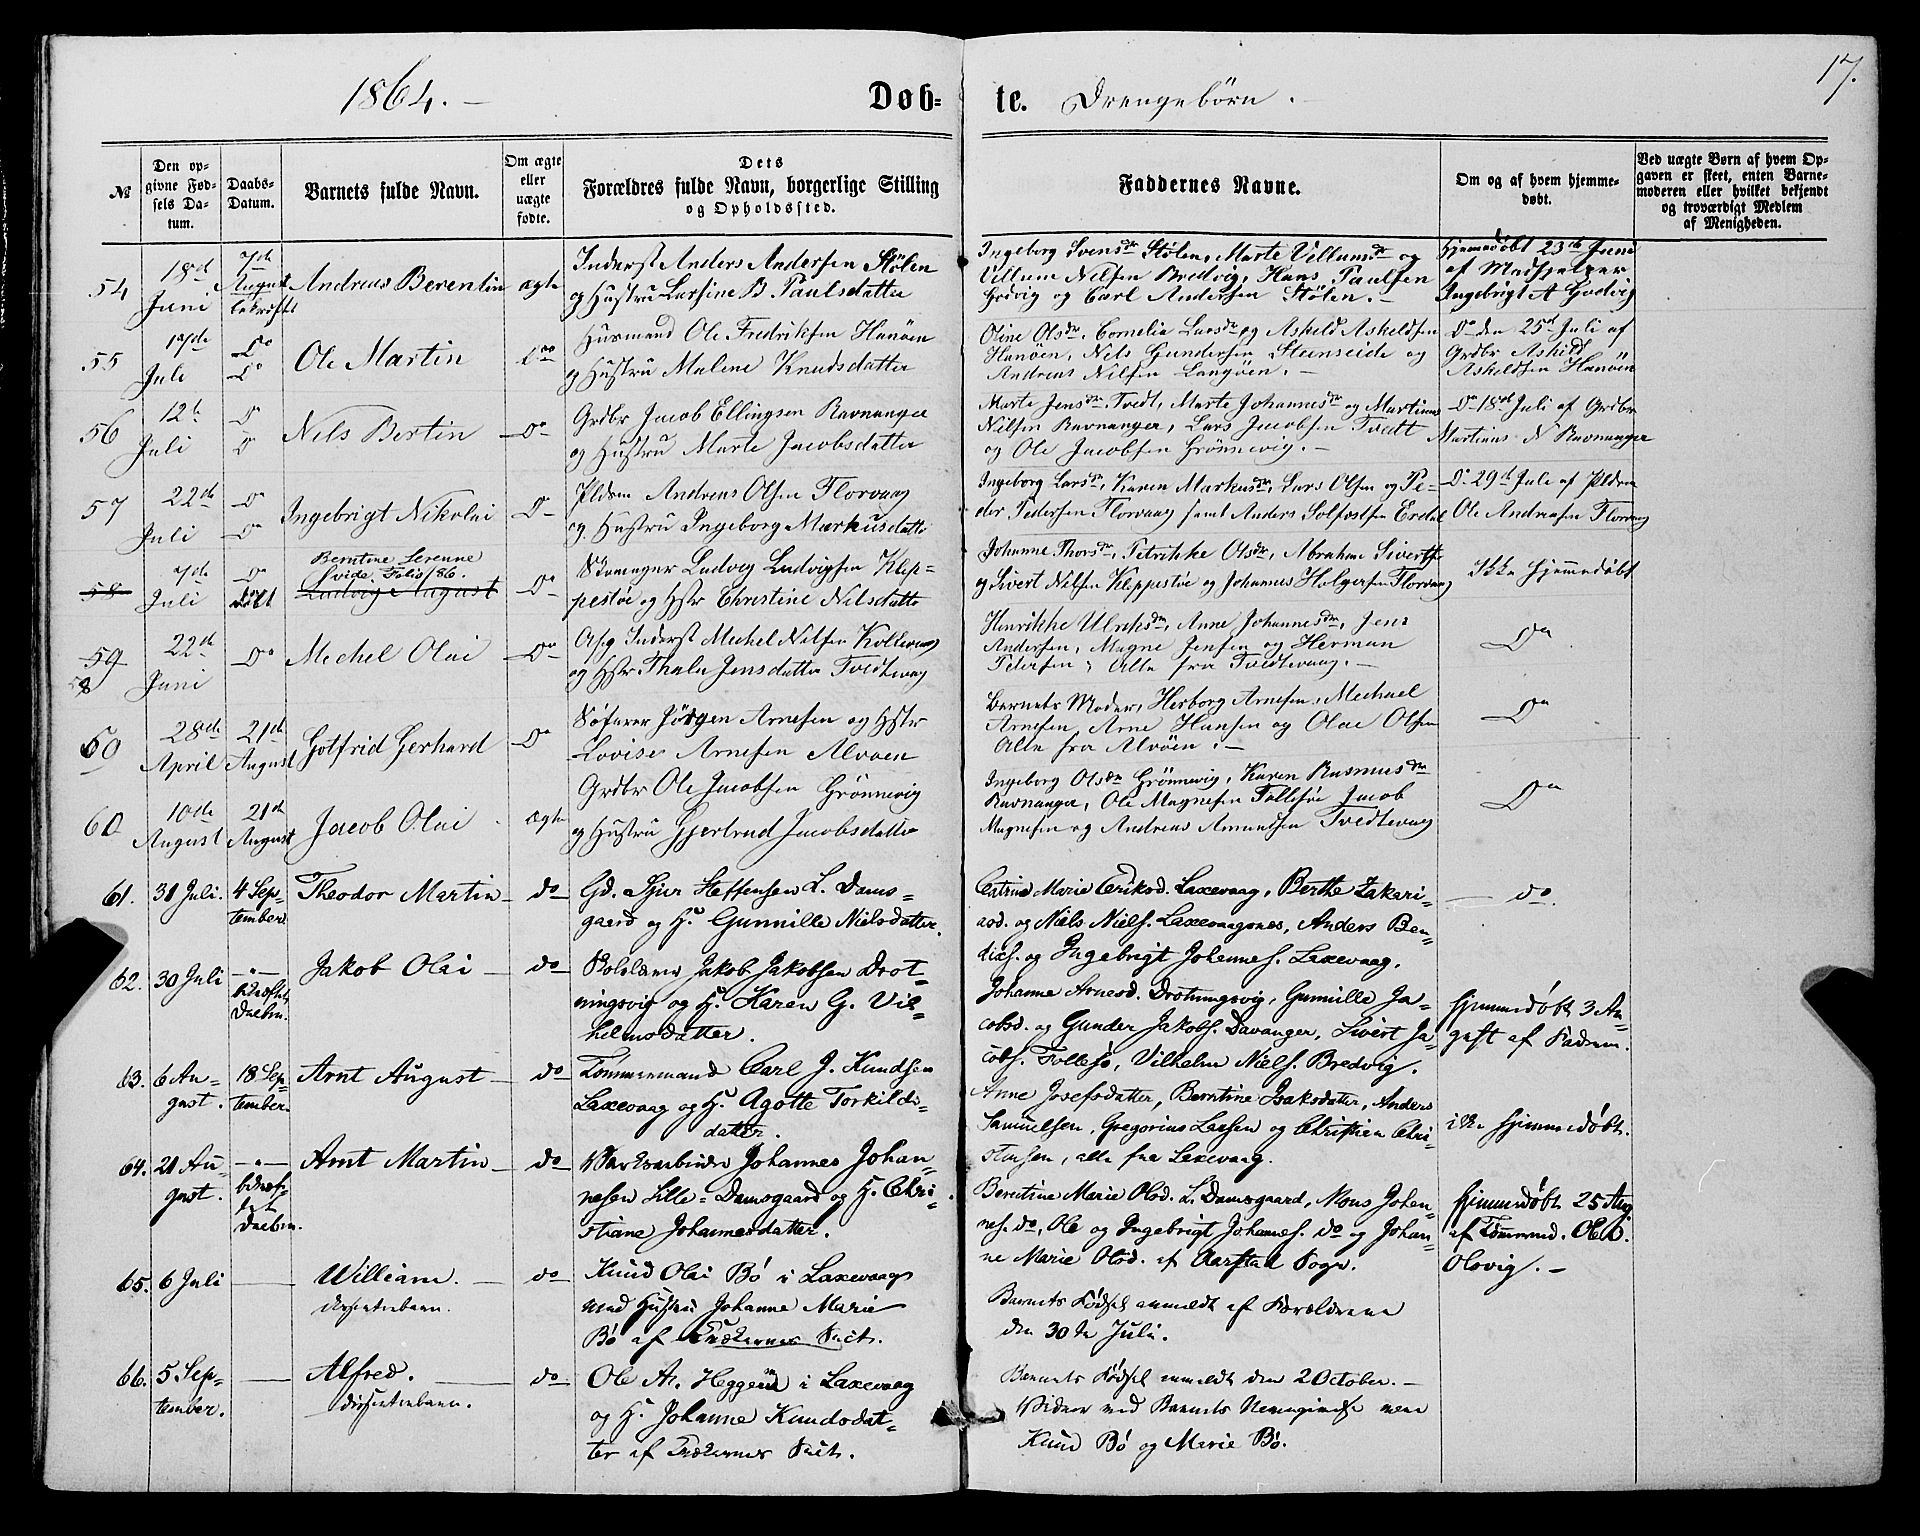 17.
1864. — Døb- te. Drengebørn. —
№
Den op-
givne Fød-
sels Da-
tum.
Daabs-
Datum.
Barnets fulde Navn.
Om ægte
eller
uægte
fødte.
Dets
Forældres fulde Navn, borgerlige Stilling
og Opholdssted.
Faddernes Navne.
Om og af hvem hjemme-
døbt.
Ved uægte Børn af hvem Op-
gaven er skeet, enten Barne-
moderen eller hvilket bekjendt
og troværdigt Medlem
af Menigheden.
54
18de
Juni
7de
August
bekræft
Andreas Berentin
ægte
Inderst Anders Andersen Stølen
og Hustru Larsine B. Paulsdatter
Ingeborg Svensdr Stølen, Marte Villumsdr og
Villum Nilsen Bredvig, Hans Paulsen
Godvig og Carl Andersen Stølen. —
Hjemmedøbt 23de Juni
af
Ingebrigt A Godvig
55
17de
Juli
Do
Do
Ole Martin
Do
Husmand Ole Fredriksen Hanøen
og Hustru Malene Knudsdatter
Oline Olsdr, Cornelia Larsdr og Askild Askeldsen
Hanøen, Nils Gundersen Steenseide og
Andreas Nilsen Langøen. —
Do den 25de Juli af
Grdbr Askild
Askeldsen Hanöen
56
12te
Juli
Do
Do
Nils Bertin
Do
Grdbr Jacob Ellingsen Ravnanger
og Hustru Marte Jacobsdatter
Marte Jensdr Tvedt, Marte Johannesdr og Martinus
Nilsen Ravnanger, Lars Jacobsen Tvedt
og Ole Jacobsen Grönnevig. —
Do 18de Juli af Grdbr
Martinus N Ravnanger
57
22de
Juli
Do
Do
Ingebrigt Nikolai
Do
Pldsm Andreas Olsen Florvaag
og Hustru Ingeborg Markusdatter
Ingeborg Larsdr, Karen Markusdr, Lars Olsen og Pe-
der Pedersen Florvaag samt Anders Solfestsen Erdal
Do 29de Juli af Pldsm
Ole Andreasen Florvaag
58
7de
Juli
Do
Berntine Serenne
vide Folio 186.
Ludvig August
Do
Skomager Ludvig Ludvigsen Klep-
pestøe og Hstr Christine Nilsdatter
Johanne Thorsdr, Petrikke Olsdr, Abraham Sivertsen
og Sivert Nilsen Kleppestøe og Johannes Holgersen Florvaag
Ikke Hjemmedøbt
59
58
22de
Juni
Do
Mechel Olai
Do
Inderst Mechel Nilsen Kollevaag
og Hstr Thala Jensdatter Tvedtevaag
Henrikke Ulriksdr, Anne Johannesdr, Jens
Andersen, Magne Jensen og Herman
Petersen, Alle fra Tvedtevaag. —
Do
60
28de
April
21de
August
Gotfrid Gerhard
Do
Søfarer Jörgen Arnesen og Hstr
Lovise Arnesen Alvøen
Barnets Moder, Herborg Arnesen, Mechael
Arnesen, Arne Hansen og Olae Olsen
Alle fra Alvöen. —
Do
60
10de
August
21de
August
Jacob Olai
ægte
Grdbr Ole Jacobsen Grönnevig
og Hustru Gjertrud Jacobsdatter
Ingeborg Olsdr Grönnevig, Karen Rasmusdr
Ravnanger, Ole Magnesen Follesøe Jacob
Magnesen og Andreas Amundsen Tvedtevaag
Do
61.
31 Juli.
4 Sep-
tember.
Theodor Martin
do
Gd. Sjur Steffensen L. Dams-
gaard og H. Gunnille Nielsdatter.
Catrine Marie Eriksd. Laxevaag, Berthe Zakari-
asd. og Niels Niels. Laxevaagsnes, Anders Ben-
dixs. og Ingebrigt Johannes. Laxevaag.
do.
62.
30 Juli
—„—
bekræftet
Daaben.
Jakob Olai
do
Jakob Jakobsen Drot-
ningsvig og H. Karen G. Vil-
helmsdatter.
Johanne Arnesd. Drotningsvig, Gunnille Ja-
cobsd. og Gunder Jakobs. Davanger, Sivert Ja-
cobs. Follesö, Vilhelm Niels. Bredvig.
Hjemmedöbt 3 Au-
gust af Faderen.
63.
6 Au-
gust.
18 Sep-
tember.
Arnt August
do
Tömmermand Carl J. Knudsen
Laxevaag og H. Agotte Torkilds-
datter.
Anne Josefsdatter, Berntine Isaksdatter, Anders
Samuelsen, Gregorius Larsen og Christian Chri-
stensen, alle fra Laxevaag.
ikke hjemmedöbt.
64.
21 Au-
gust.
—„—
bekræf-
tet
Daaben.
Arnt Martin
do
Værksarbeider Johannes Johan-
nesen Lille-Damsgaard og H. Chri-
stiane Johannesdatter.
Berntine Marie Olsd. L. Damsgaard, Mons Johan-
nes. do, Ole og Ingebrigt Johannes. do og Johan-
ne Marie Olsd. af Aarstad Sogn.
Hjemmedöbt 25 Aug
af Tömmermd. Ole O.
Olsvig. —
65.
6 Juli
William.
dissenterbarn.
do
Knud Olai Bö i Laxevaag
med Hustru Johanne Marie
Bö af Kvækernes Sect.
Barnets Födsel anmeldt af Forældrene
den 30te Juli.
66.
5 Sep-
tember.
Alfred.
dissenterbarn.
do
Ole As. Heggeim i Laxevaag
og H. Johanne Knudsdat-
ter af Kvækernes Sect.
Barnets Födsel anmeldt den 2 October. —
Vidner ved Barnets Navngivelse vare
Knud Bö og Marie Bö.